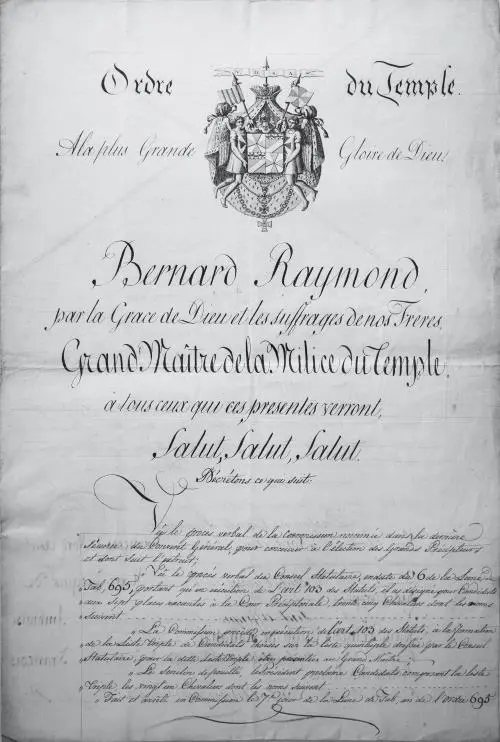 Ordre du Temple.
A la plus Grande Gloire de Dieu.
Bernard Raymond,
par la Grace de Dieu et les suffrages de nos Frères,
Grand Maître de la Milice du Temple,
à tous ceux qui ces presentes verront,
Salut, Salut, Salut.
Décrétons ce qui suit.
Vu le procès verbal de la commission nommée dans la dernière
Séance du Convent Général, pour concourir à l'élection des Grands Précepteurs
et dont suit l'extrait;
"Vu le procès verbal du Conseil Statutaire, en date du 6 de la Lune de
Tab 695, portant qu'en exécution de l'art 103 des Statuts, il a désigné pour Candidats
aux Sept places vacantes à la Cour Préceptoriale, trente cinq Chevaliers dont les noms
Suivent
"La Commission procède en exécution de l'art 103 des Statuts, à la formation
de la Liste Triple de Candidats choisis sur la liste quintuple dressée par le Conseil
Statutaire, pour la dite Liste triple être présentée au Grand Maître.
"Le Scrutin dépouillé, le Président proclame Candidats composant la liste
Triple les vingt un Chevaliers dont les noms suivent
"Fait et arrêté en Commission le 7e jour de la Lune de Tab, an de l'ordre 695